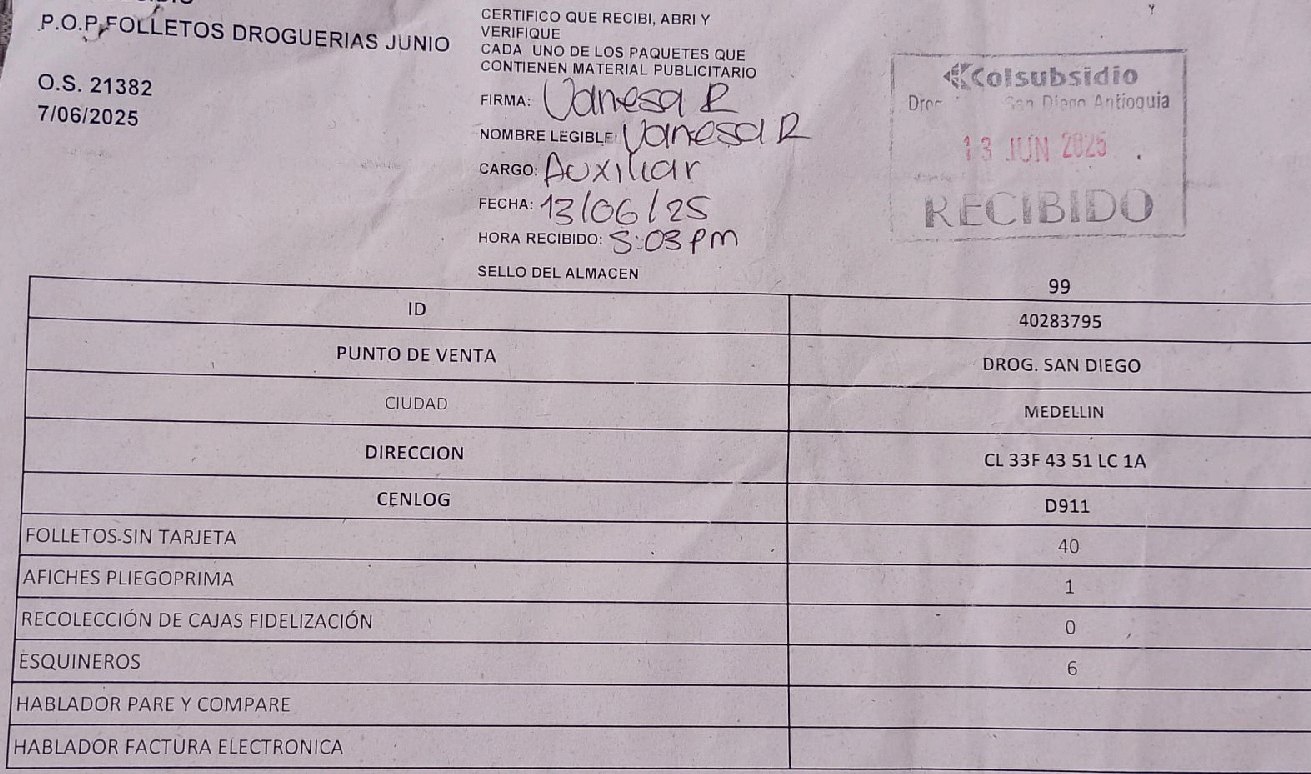 P.O.P FOLLETOS DROGUERIAS JUNIO
O.S. 21382
7/06/2025
CERTIFICO QUE RECIBI, ABRI Y
VERIFIQUE
CADA UNO DE LOS PAQUETES QUE
CONTIENEN MATERIAL PUBLICITARIO
FIRMA: Vanesa R
NOMBRE LEGIBLE: Vanesa R
CARGO: Auxiliar
FECHA: 13/06/25
HORA RECIBIDO: :03 pm
SELLO DEL ALMACEN
Colsubsidio
San Diego Antioquia
13 JUN 2025
RECIBIDO
99
ID 40283795
PUNTO DE VENTA DROG. SAN DIEGO
CIUDAD MEDELLIN
DIRECCION CL 33F 43 51 LC 1A
CENLOG D911
FOLLETOS-SIN TARJETA 40
AFICHES PLIEGOPRIMA 1
RECOLECCIÓN DE CAJAS FIDELIZACIÓN 0
ESQUINEROS 6
HABLADOR PARE Y COMPARE
HABLADOR FACTURA ELECTRONICA